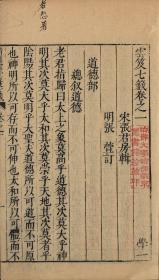 雲笈七籤卷之一
宋張君房輯
明張萱訂
道德部
總敘道德
老君指歸曰太上之象莫高乎道德其次莫大乎神
明其次莫大乎太和其次莫崇乎天地其次莫著乎
陰陽其次莫明乎大聖夫道德所以可道而不可原
也神明所以可存而不可伸也太和所以可體而不